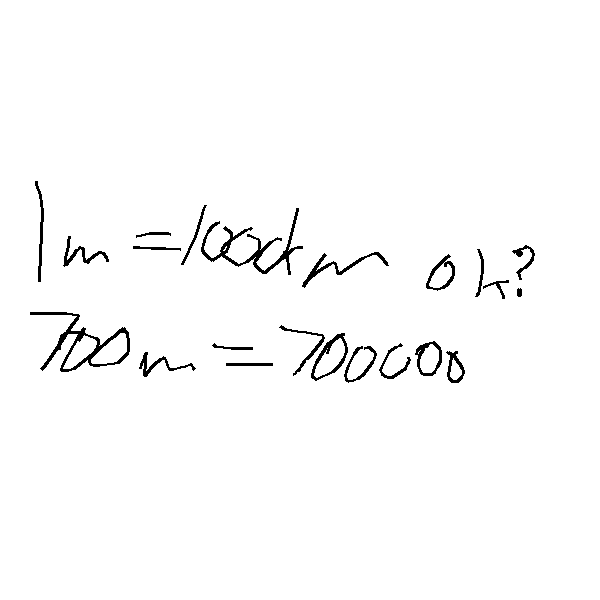 1m=1000km ok?
700m=700000